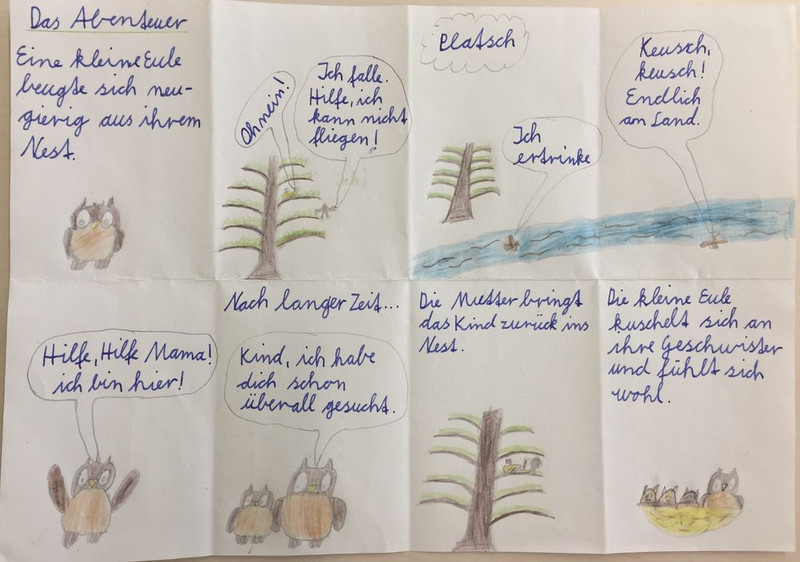 Das Abenteuer
Eine kleine Eule
beugte sich neu-
gierig aus ihrem
Nest.
Oh nein!
Ich falle.
Hilfe, ich
kann nicht
fliegen!
Platsch
Ich
ertrinke
Keusch,
keusch!
Endlich
am Land.
Hilfe, Hilfe Mama!
ich bin hier!
Nach langer Zeit...
Kind, ich habe
dich schon
überall gesucht.
Die Mutter bringt
das Kind zurück ins
Nest.
Die kleine Eule
kuschelt sich an
ihre Geschwister
und fühlt sich
wohl.